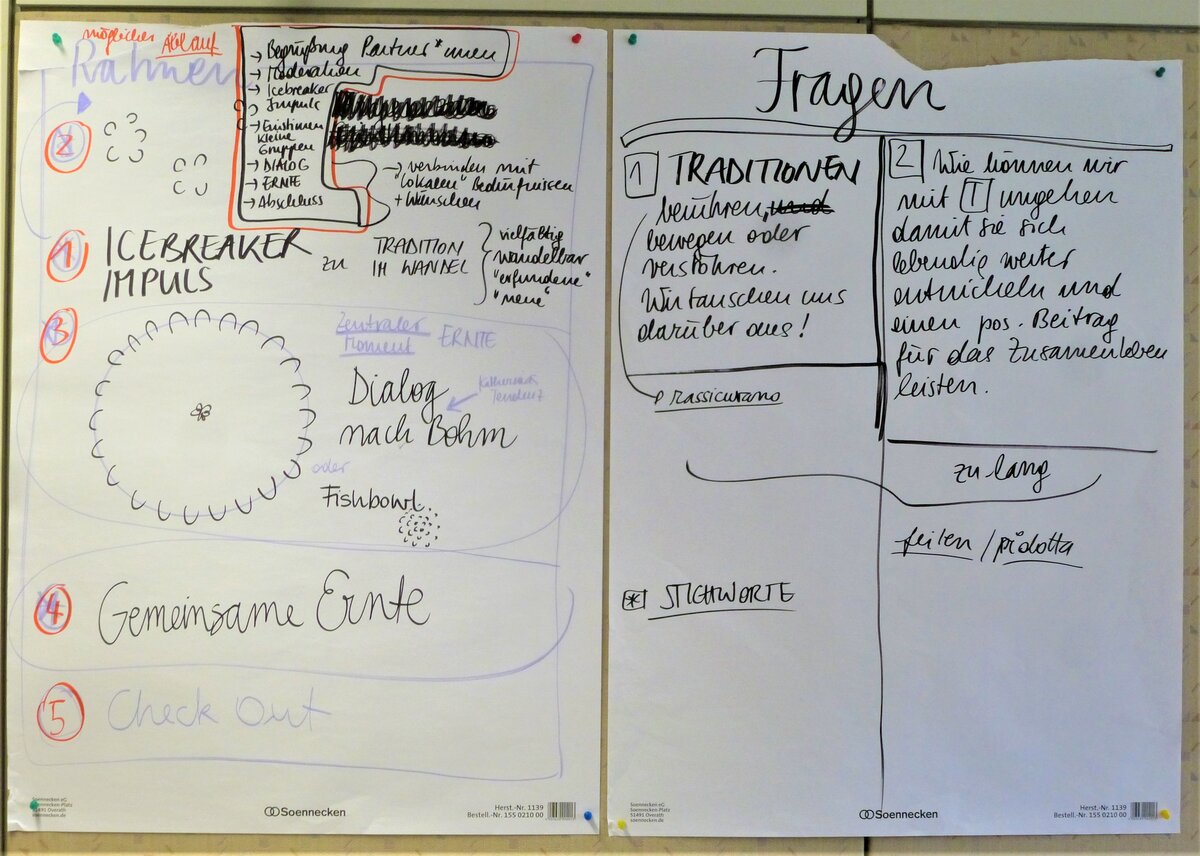 möglicher Ablauf
Rahmen
→ Begrüßung Partner*innen
→ Moderation
→ Icebreaker
Impuls
→ Einstimmen
kleine
Gruppen
→ DIALOG
→ ERNTE
→ Abschluss
→ verbinden mit
"lokalen" Bedürfnissen
+ Wünschen
2
1 ICEBREAKER
IMPULS
zu
TRADITION
IM WANDEL
vielfältig
wandelbar
"erfundene"
"neue"
3
Zentraler
Moment
ERNTE
Dialog
nach Bohm
oder
Fishbowl
4 Gemeinsame Ernte
5 Check Out
Soennecken eG
Soennecken-Platz
51491 Overath
soennecken.de
Soennecken
Herst.-Nr. 1139
Bestell.-Nr. 155 0210 00
Fragen
1 TRADITIONEN
berühren, und
bewegen oder
verstören.
Wir tauschen uns
darüber aus!
rassicurano
2 Wie können wir
mit 1 umgehen
damit sie sich
lebendig weiter
entwickeln und
einen pos. Beitrag
für das Zusamenleben
leisten.
zu lang
feilen / ridotta
* STICHWORTE
Soennecken eG
Soennecken-Platz
51491 Overath
soennecken.de
Soennecken
Herst.-Nr. 1139
Bestell.-Nr. 155 0210 00